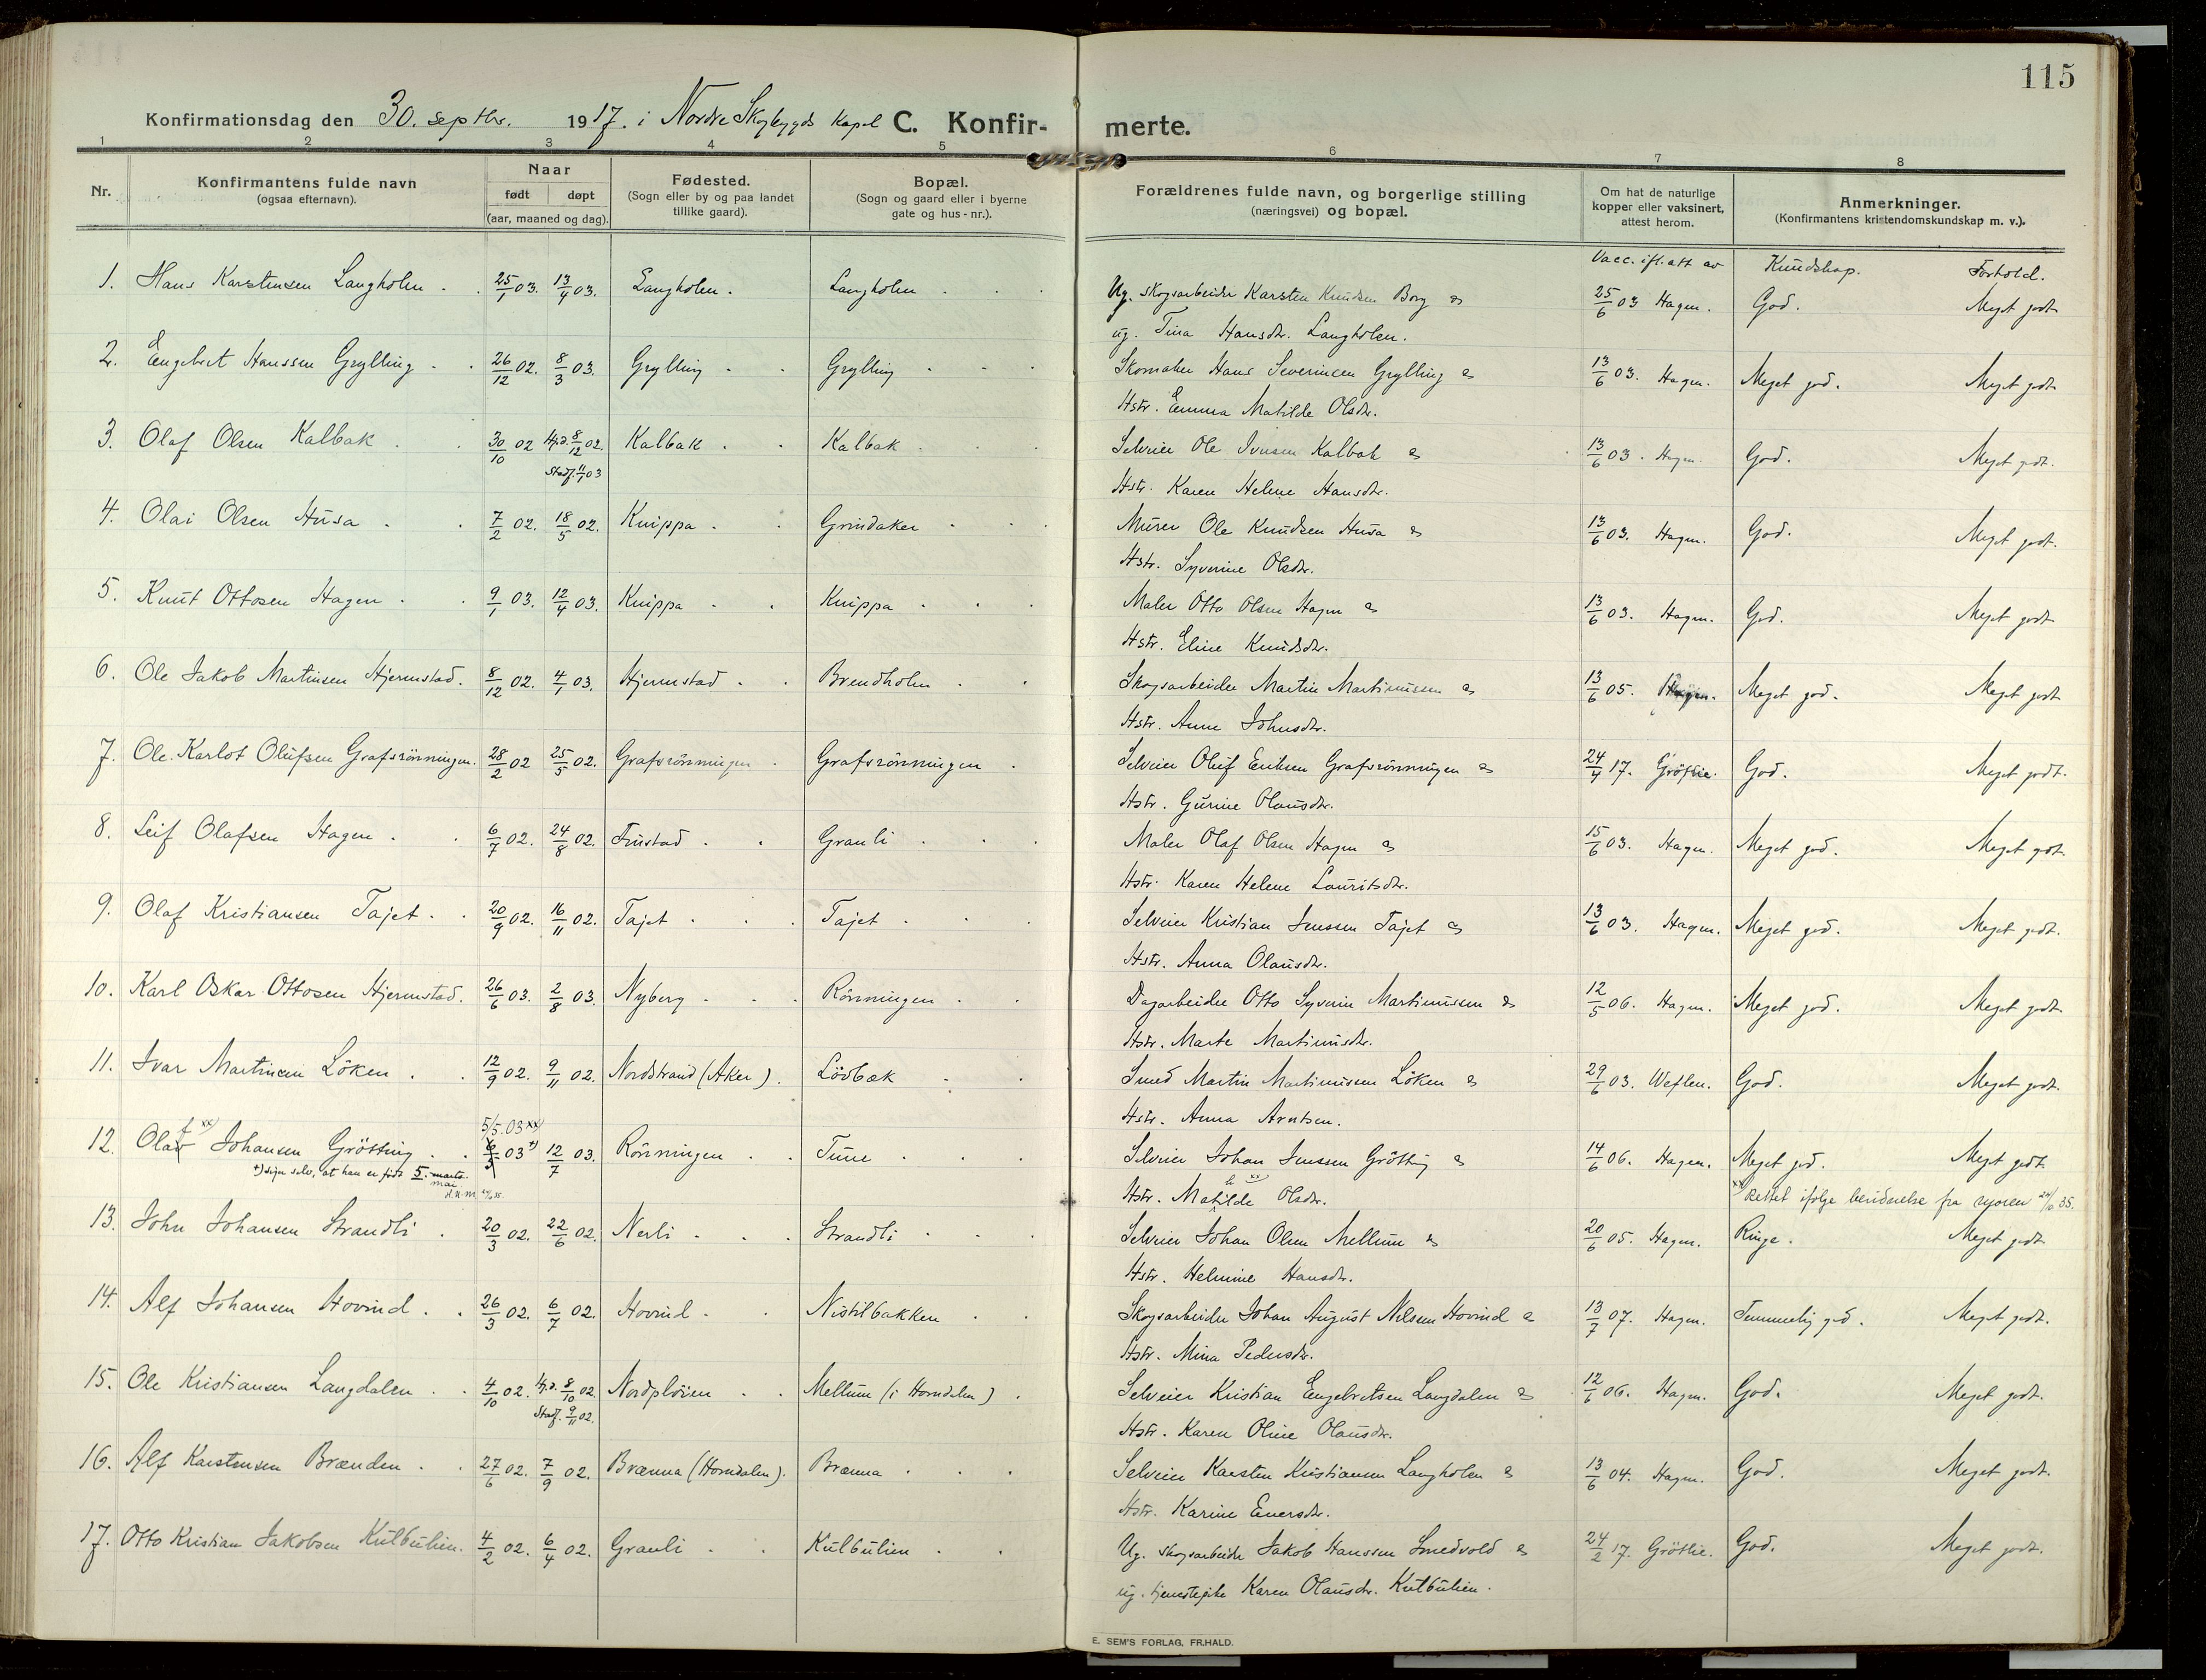 115
Konfirmationsdag den 30. septbr. 1917. i Nordre Skogbygds Kapel C. Konfir- merte.
1 2 3 4 5 6 7 8
Nr. Konfirmantens fulde navn (ogsaa efternavn). Naar født døpt (aar, maaned og dag). Fødested. (Sogn eller by og paa landet tillike gaard). Bopæl. (Sogn og gaard eller i byerne gate og hus-nr.). Forældrenes fulde navn, og borgerlige stilling (næringsvei) og bopæl. Om hat de naturlige kopper eller vaksinert, attest herom. Anmerkninger. (Konfirmantens kristendomskundskap m. v.).
Vacc. ifl. att av Kundskap. Forhold.
1. Hans Karstensen Langholen 25/1 03. 13/4 03. Langholen. Langholen Ug. skogsarbeider Karsten Knudsen Borg & 25/6 03 Hagen. God. Meget godt
ug. Tina Hansdr. Langholen.
2. Engebret Hanssen Grylling 26/12 02. 8/3 03. Grylling Grylling Skomaker Hans Severinsen Grylling & 13/6 03. Hagen. Meget god. Meget godt
Hstr. Emma Matilde Olsdr.
3. Olaf Olsen Kalbak 30/10 02 Hjd. 8/12 02. Kalbak Kalbak Selveier Ole Iversen Kalbak & 13/6 03. Hagen. God. Meget godt.
Stadf. 11/1 03 Hstr. Karen Helene Hansdr.
4. Olai Olsen Husa 7/2 02. 18/5 02. Knippa Grindaker Murer Ole Knudsen Husa & 13/6 03. Hagen. God. Meget godt.
Hstr. Syverine Olsdr.
5. Knut Ottosen Hagen 9/1 03. 12/4 03. Knippa Knippa Maler Otto Olsen Hagen & 13/6 03. Hagen. God. Meget godt
Hstr. Eline Knudsdr.
6. Ole Jakob Martinsen Hjermstad. 8/12 02. 4/1 03. Hjermstad Brendholen Skogsarbeider Martin Martinussen & 13/6 05. Hagen. Meget god. Meget godt
Hstr. Anne Johnsdr.
7. Ole Karlot Olufsen Grafsrönningen. 28/2 02 25/5 02. Grafsrönningen Grafsrönningen Selveier Oluf Eriksen Grafsrönningen & 24/4 17. Gröttie. God. Meget godt.
Hstr. Gurine Olausdr.
8. Leif Olafsen Hagen 6/7 02. 24/8 02. Frustad Granli Maler Olaf Olsen Hagen & 15/6 03. Hagen. Meget god. Meget godt.
Hstr. Karen Helene Lauritsdr.
9. Olaf Kristiansen Tajet 20/9 02. 16/11 02. Tajet Tajet Selveier Kristian Jenssen Tajet & 13/6 03. Hagen. Meget god. Meget godt.
Hstr. Anna Olausdr.
10. Karl Oskar Ottosen Hjermstad. 26/6 03. 2/8 03. Nyberg Rönningen Dagarbeider Otto Syverin Martinussen & 12/5 06. Hagen. Meget god. Meget godt
Hstr. Marte Martinusdr.
11. Ivar Martinsen Löken 12/9 02. 9/11 02. Nordstrand (Aker). Lövbæk Smed Martin Martinussen Löken & 29/6 03. Weflen. God. Meget godt.
Hstr. Anna Arntsen.
5/5.03 xx)
12. Olav f xx) Johansen Grötting 03 +) 12/7 03. Rönningen Tune Selveier Johan Jenssen Grötting & 14/6 06. Hagen. Meget god. Meget godt
+) sier selv, at han er født 5. marts mai Hstr. Matilde Olsdr. xx) Rettet ifølge beridselse fra 35.
13. John Johansen Strandli 20/3 02. 22/6 02. Nerli Strandli Selveier Johan Olsen Mellum & 20/6 05. Hagen. Ringe. Meget godt
Hstr. Helmine Hansdr.
14. Alf Johansen Hovind 26/3 02. 6/7 02. Hovind Nistilbakken Skogsarbeider Johan August Nilsen Hovind & 13/7 07. Hagen. Temmelig god. Meget godt.
Hstr. Mina Pedersdr.
15. Ole Kristiansen Langdalen 4/10 02. Hjd. 8/10 02 Nordplöien Mellum (i Horndalen) Selveier Kristian Engebretsen Langdalen & 12/6 06. Hagen. God. Meget godt.
Stadf. 9/11 02. Hstr. Karen Oline Olausdr.
16. Alf Karstensen Brænden 27/6 02. 7/9 02. Brænna (Horndalen). Brænna Selveier Karsten Kristiansen Langholen & 13/6 04. Hagen. God. Meget godt.
Hstr. Karine Eversdr.
17. Otto Kristian Jakobsen Kulbulien. 4/2 02. 6/4 02. Granli Kulbulien Ug. skogsarbeider Jakob Hanssen Smedvold & 24/2 17. Gröttie. God. Meget godt.
ug. tjenestepike Karen Olausdr. Kulbulien.
E. SEM'S FORLAG, FR.HALD.